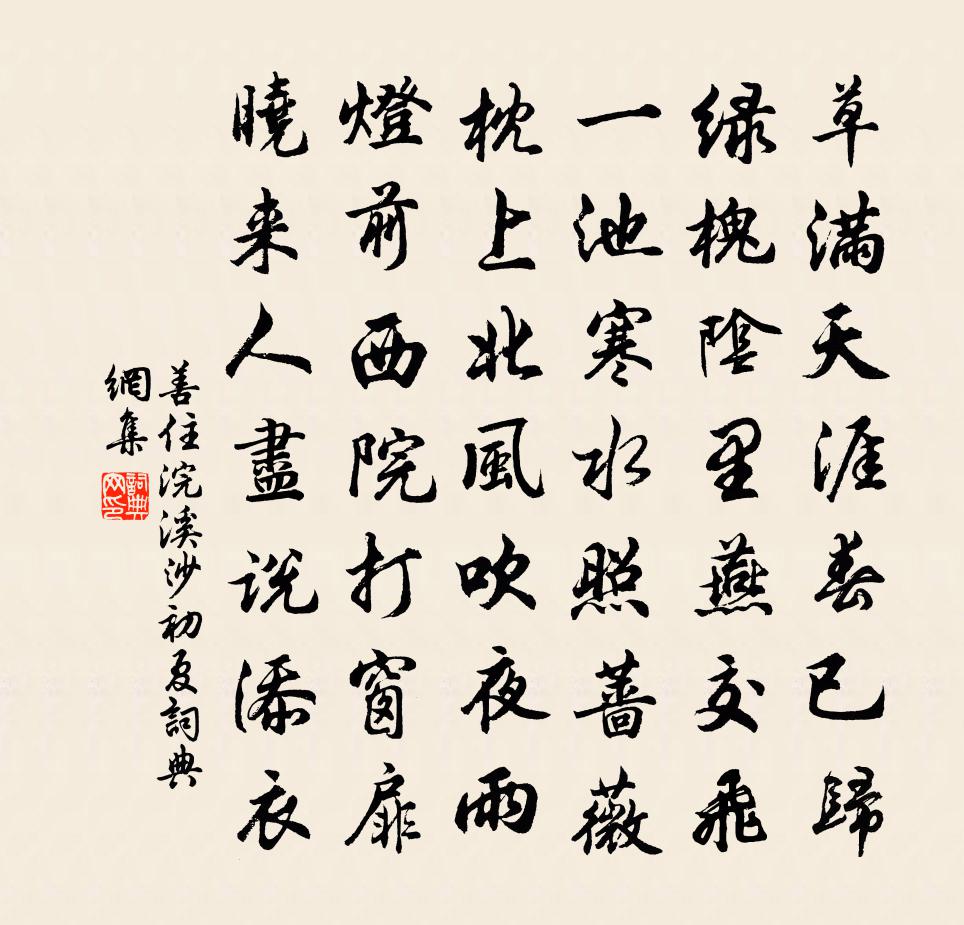 草满天涯春已歸
绿槐陰里燕交飛
一池寒水照蔷薇
枕上北風吹夜雨
燈前西院打窗扉
曉来人盡说添衣
善住浣溪沙初夏詞典
網集
詞典
网印